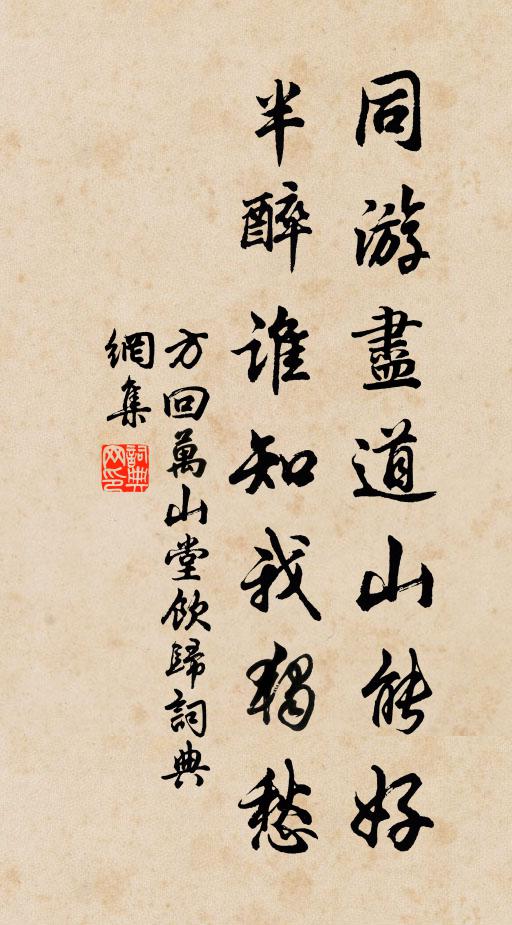 同游盡道山能好
半醉誰知我獨愁
方回萬山堂飲歸詞典
網集
詞典
网印